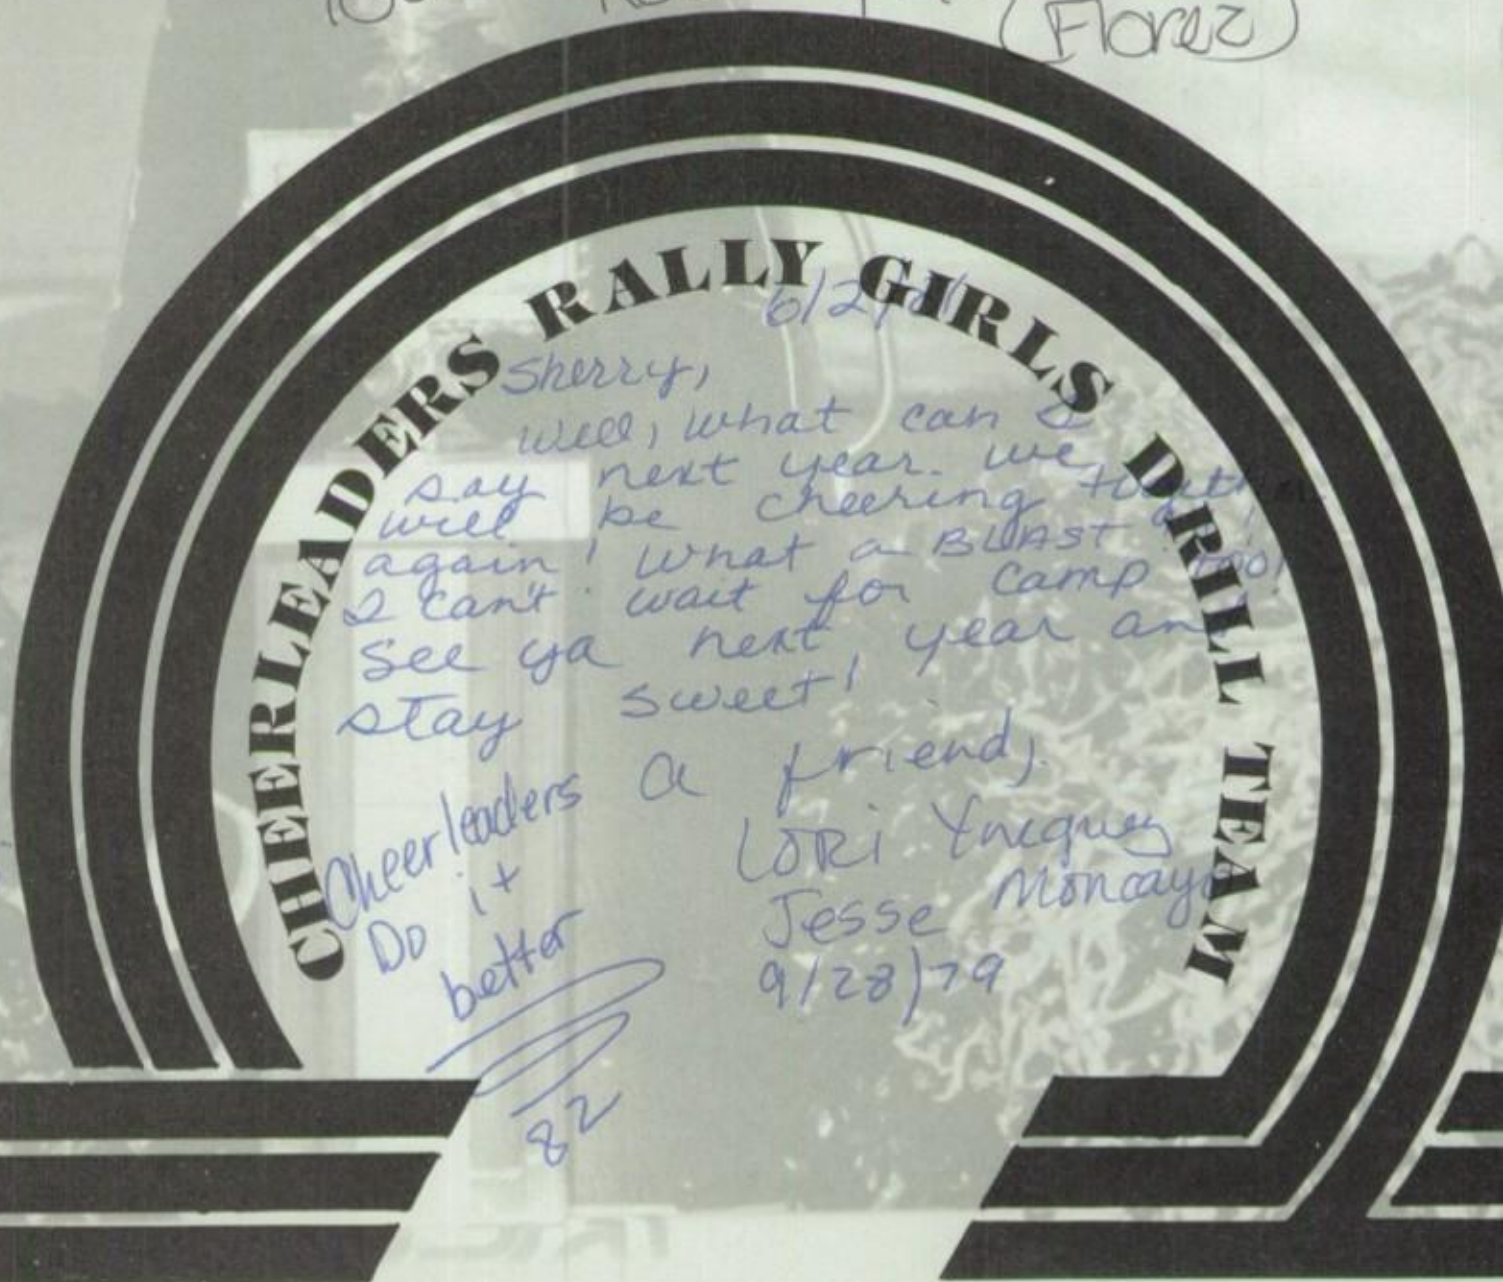 (Florez)
CHEERLEADERS RALLY GIRLS DRILL TEAM
6/2/
Sherry,
Well, what can I
say next year. we
will be cheering together
again! What a BLAST!
I can't wait for camp too!
See ya next year an
stay sweet!
a friend,
LORi Yneguez
Jesse Moncayo
9/28/79
Cheerleaders
Do it
better
82